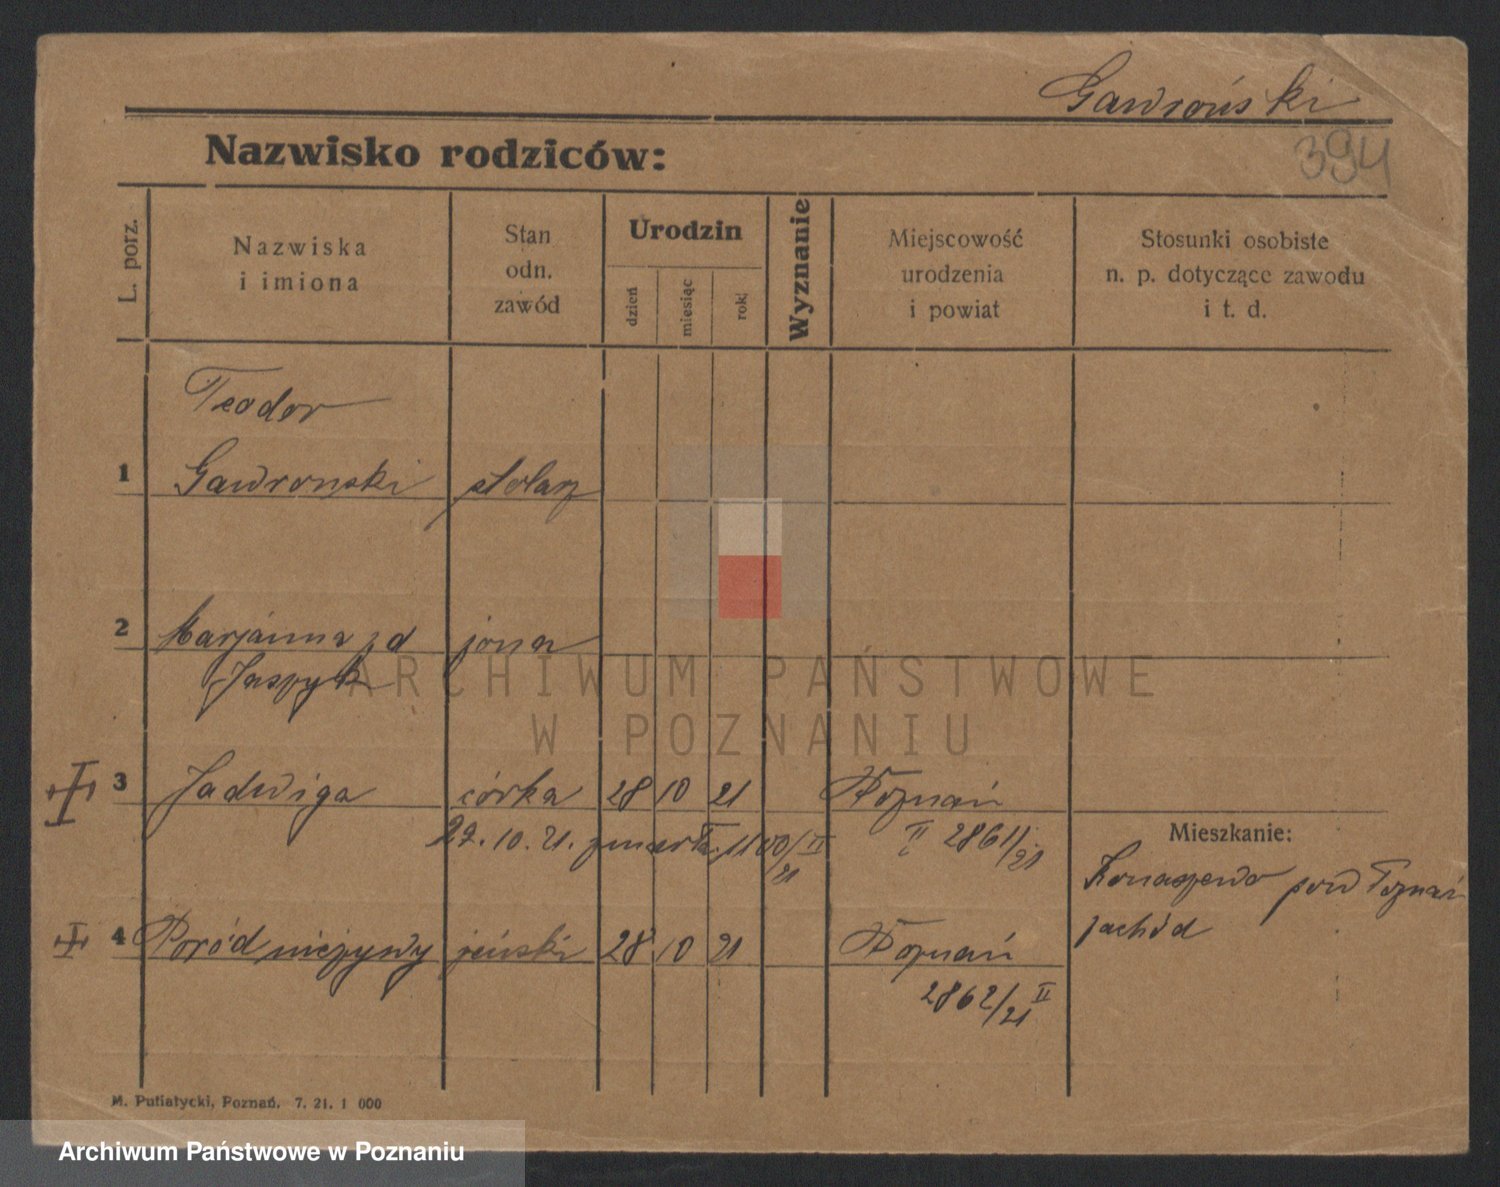 Gawroński
394
Nazwisko rodziców:
L. porz.
Nazwiska
i imiona
Stan
odn.
zawód
Urodzin
dzień
miesiąc
rok
Wyznanie
Miejscowość
urodzenia
i powiat
Stosunki osobiste
n. p. dotyczące zawodu
i t. d.
Teodor
1 Gawronski stolarz
2 Marjanna zd żona
Jaszyk
ARCHIWUM PAŃSTWOWE
W POZNANIU
3 Jadwiga córka 28 10 21 Poznań
22.10.21. zmarła 1100/21 II
II 2861/21
Mieszkanie:
Konarzewo pow Poznań
zachód
4 Poród nieżywy żeński 28 10 21 Poznań
2862/21 II
M. Putiatycki, Poznań. 7. 21. 1 000
Archiwum Państwowe w Poznaniu